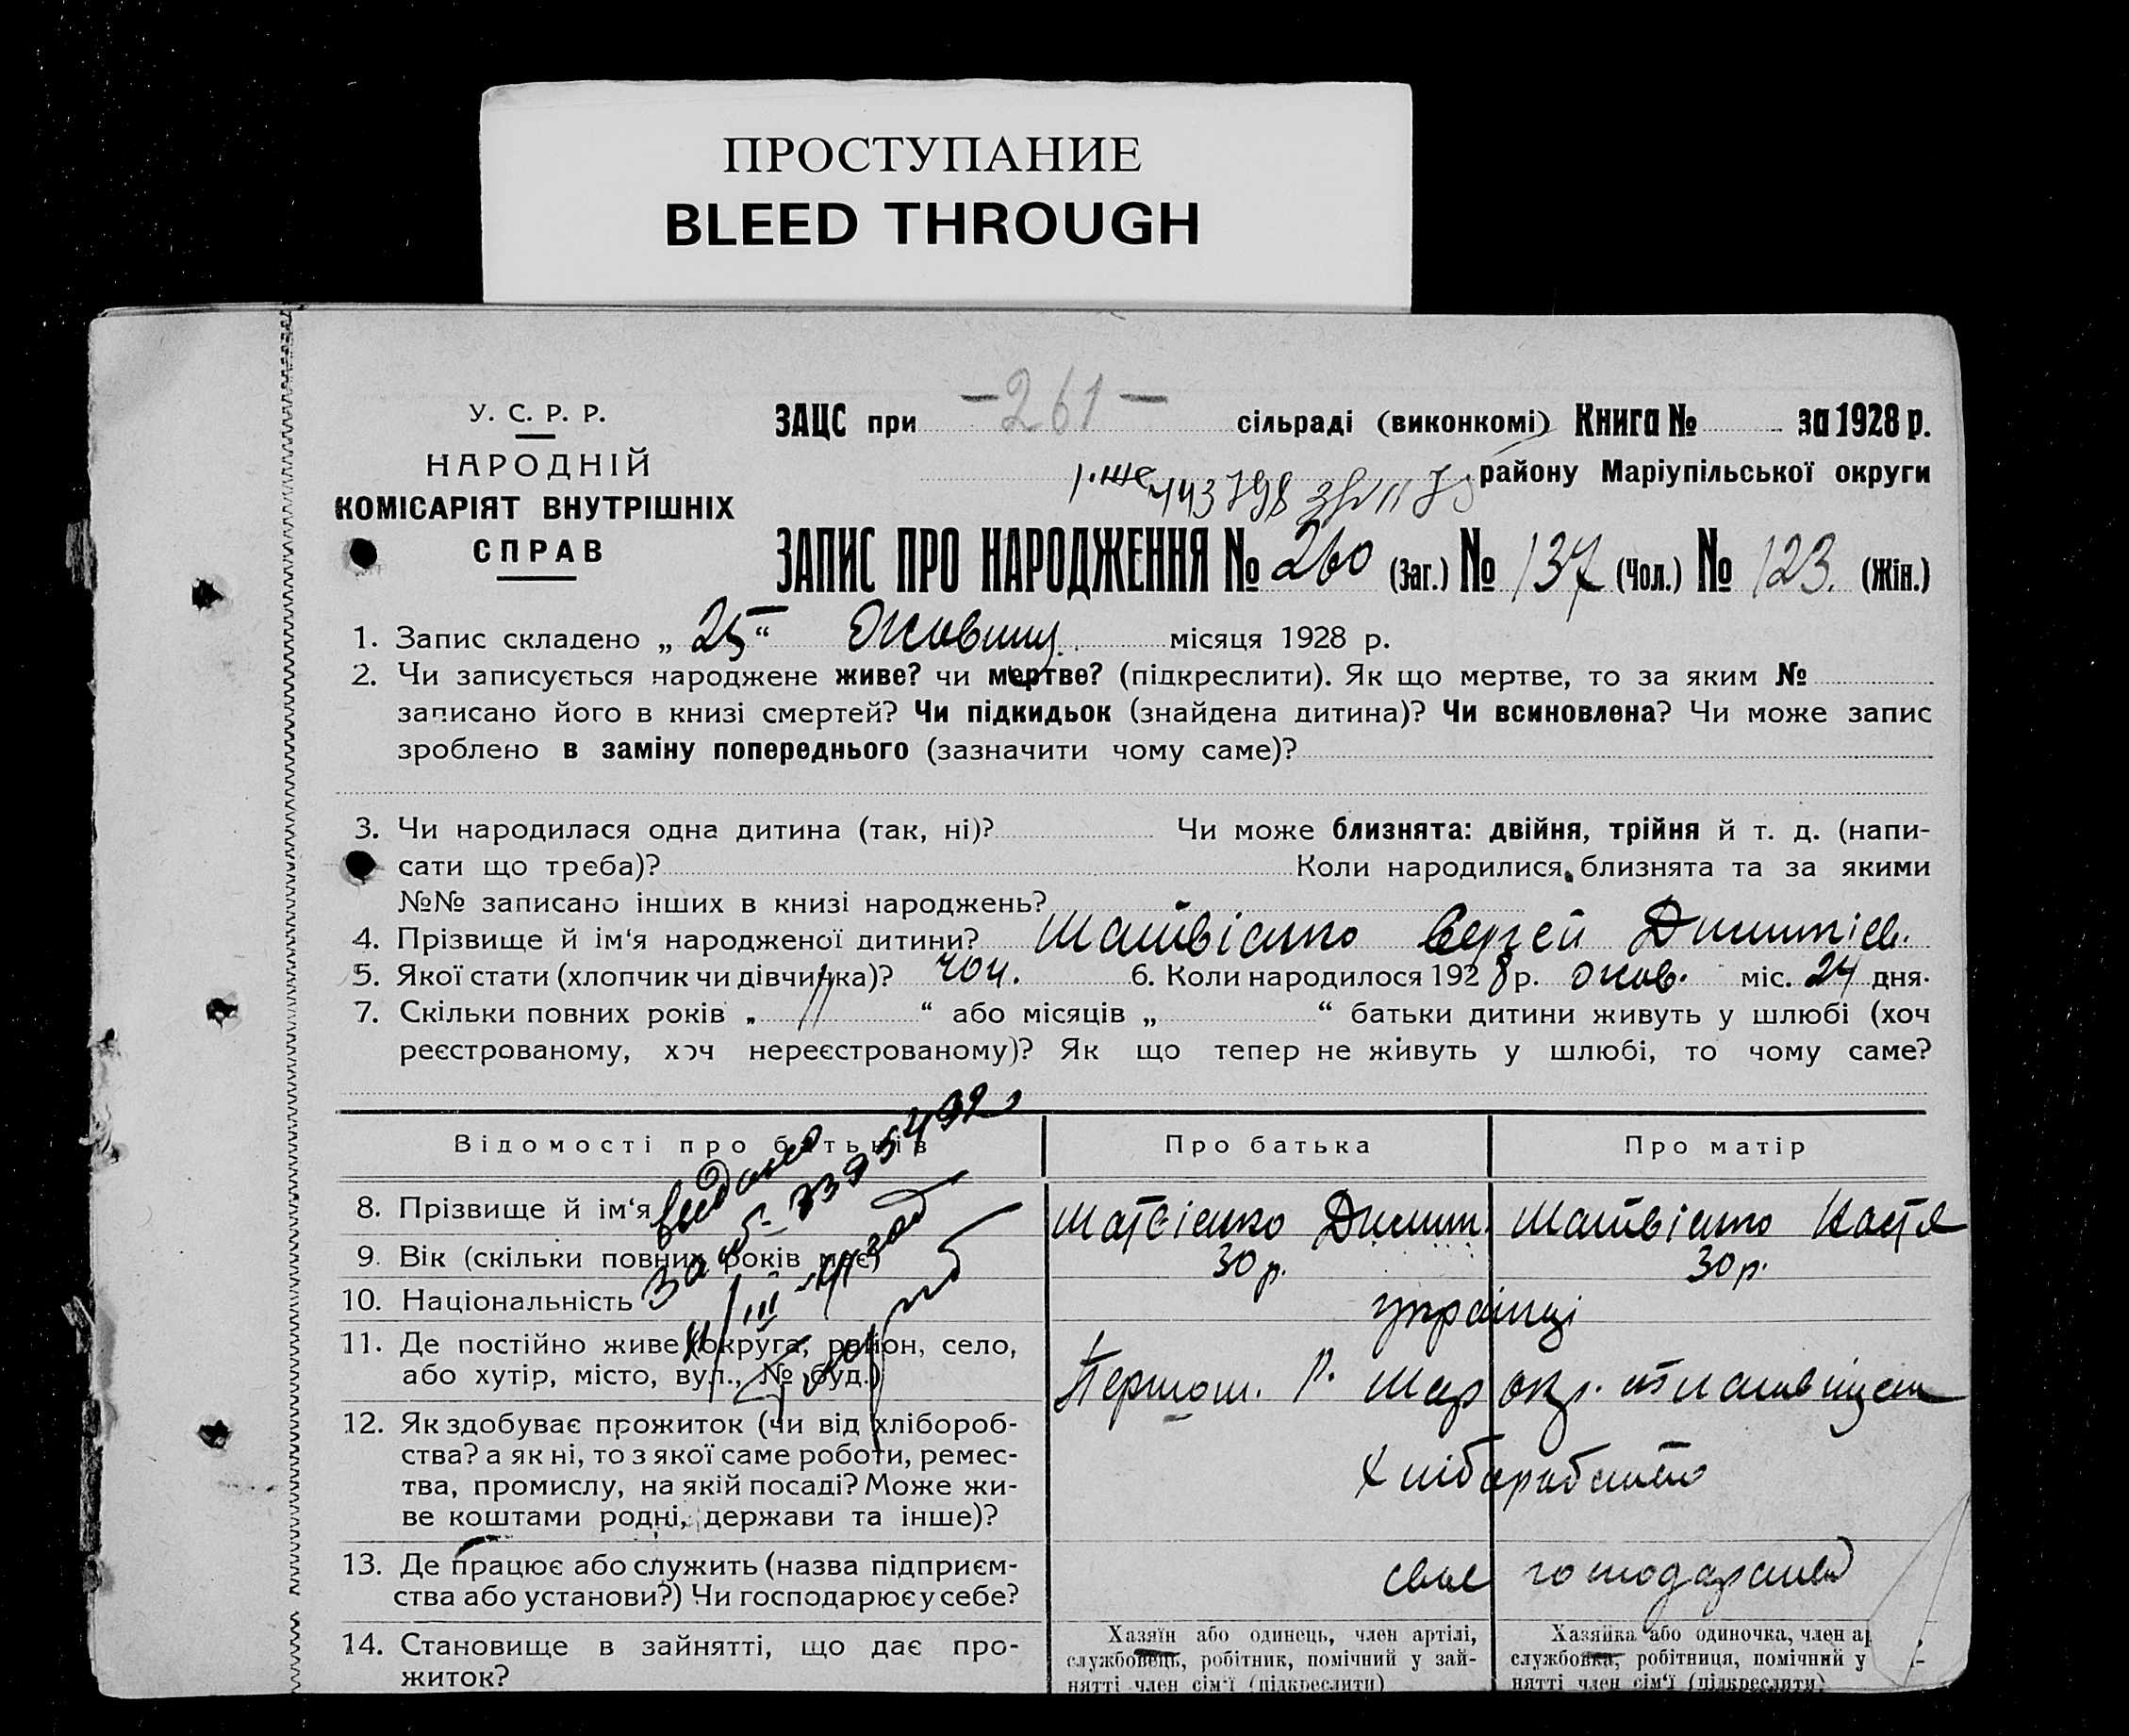 ПРОСТУПАНИЕ
BLEED THROUGH
У. С. Р. Р.
НАРОДНІЙ
КОМІСАРІЯТ ВНУТРІШНІХ
СПРАВ
ЗАЦС при -261- сільраді (виконкомі) Книга № за 1928 р.
району Маріупільської округи
ЗАПИС ПРО НАРОДЖЕННЯ № 260 (Заг.) № 137 (Чол.) № 123. (Жін.)
1. Запис складено „ 25 “ Жовтня місяця 1928 р.
2. Чи записується народжене живе? чи мертве? (підкреслити). Як що мертве, то за яким №
записано його в книзі смертей? Чи підкидьок (знайдена дитина)? Чи всиновлена? Чи може запис
зроблено в заміну попереднього (зазначити чому саме)?
3. Чи народилася одна дитина (так, ні)? Чи може близнята: двійня, трійня й т. д. (напи-
сати що треба)? Коли народилися близнята та за якими
№№ записано інших в книзі народжень?
4. Прізвище й ім‘я народженої дитини? Матвієнко Сергей Димитрієв.
5. Якої стати (хлопчик чи дівчинка)? чол. 6. Коли народилося 1928 р. жов. міс. 24 дня.
7. Скільки повних років „ 11 “ або місяців „ “ батьки дитини живуть у шлюбі (хоч
реєстрованому, хоч нереєстрованому)? Як що тепер не живуть у шлюбі, то чому саме?
Відомості про батьків Про батька Про матір
видано
8. Прізвище й ім‘я Матвієнко Димит. Матвієнко Настя
9. Вік (скільки повних років має) 30 р. 30 р.
10. Національність українці
11. Де постійно живе (округа, район, село,
або хутір, місто, вул., № буд.) Першот. Р. Мар окр.
12. Як здобуває прожиток (чи від хлібороб-
ства? а як ні, то з якої саме роботи, ремес-
тва, промислу, на якій посаді? Може жи-
ве коштами родні, держави та інше)? Хліборобство
13. Де працює або служить (назва підприєм-
ства або установи?) Чи господарює у себе? своє господарство
14. Становище в зайнятті, що дає про-
житок?
Хазяїн або одинець, член артілі,
службовець, робітник, помічний у зай-
нятті член сім‘ї (підкреслити)
Хазяйка або одиночка, член ар
службовка, робітниця, помічний у
нятті член сім‘ї (підкреслити)